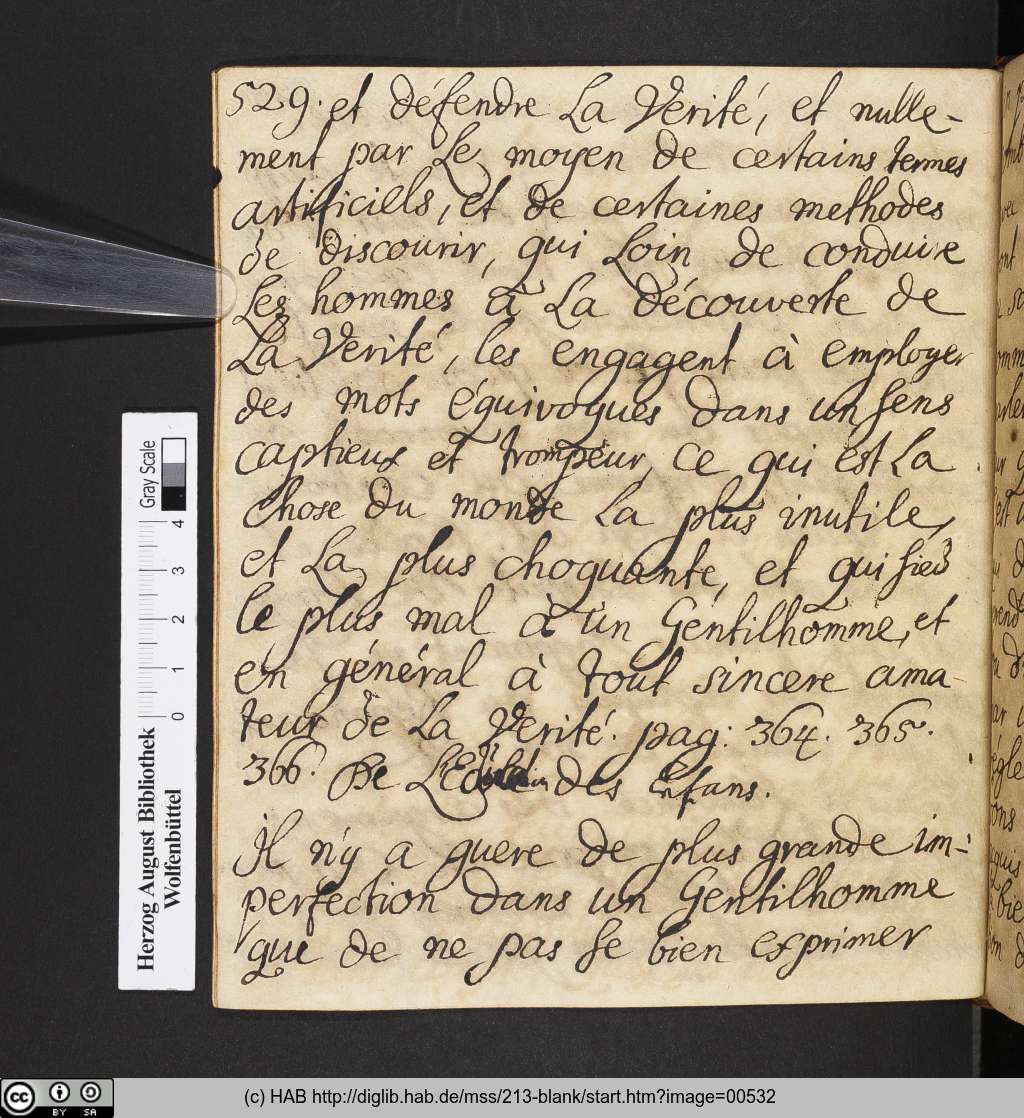 529. et défendre La Verité, et nulle-
ment par Le moyen de certains termes
artificiels, et de certaines methodes
de discourir, qui Loin de conduire
Les hommes à La découverte de
La Verité, les engagent à employer
des mots équivoques dans un sens
captieux et trompeur, ce qui est La
Chose du monde La plus inutile,
et La plus choquante, et qui sied
le plus mal à un Gentilhomme, et
en général à tout sincere ama-
teur de La Verité. pag: 364. 365.
366. De des Enfans.
Il n'y a guere de plus grande im-
perfection dans un Gentilhomme
que de ne pas se bien exprimer
Gray Scale
4
3
2
1
0
Herzog August Bibliothek
Wolfenbüttel
cc BY SA
(c) HAB http://diglib.hab.de/mss/213-blank/start.htm?image=00532